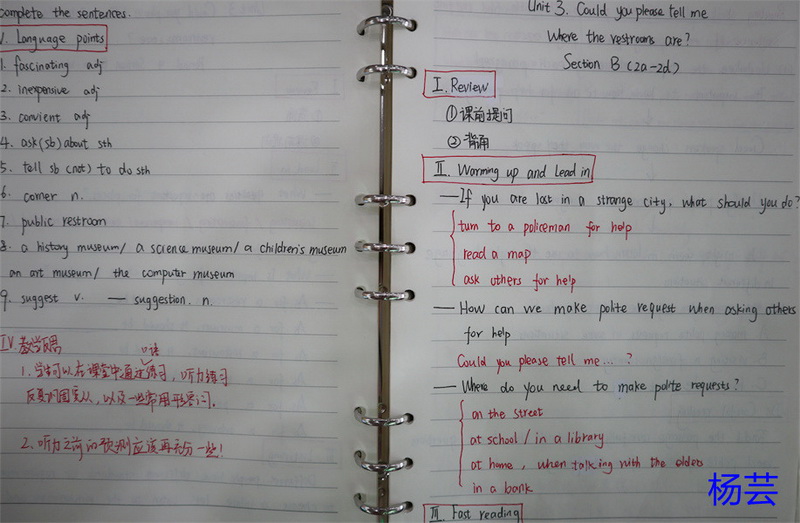 complete the sentences.
V. Language points
1. fascinating adj
2. inexpensive adj
3. convient adj
4. ask(sb) about sth
5. tell sb (not) to do sth
6. corner n.
7. public restroom
8. a history museum/ a science museum/ a children's museum
an art museum/ the computer museum
9. suggest v. — suggestion. n.
IV 教学反思
口语
1. 学生可以在课堂中通过练习，听力练习
以及一些常用形容词。
2. 听力之前的预测应该再充分一些！
Unit 3. Could you please tell me
where the restrooms are?
Section B (2a-2d)
I. Review
①课前提问
②背诵
II. Warming up and Lead in
—If you are lost in a strange city, what should you do?
turn to a policeman for help
read a map
ask others for help
—How can we make polite request when asking others
for help
Could you please tell me... ?
—Where do you need to make polite requests?
on the street
at school / in a library
at home, when talking with the elders
in a bank
III. Fast reading
杨芸